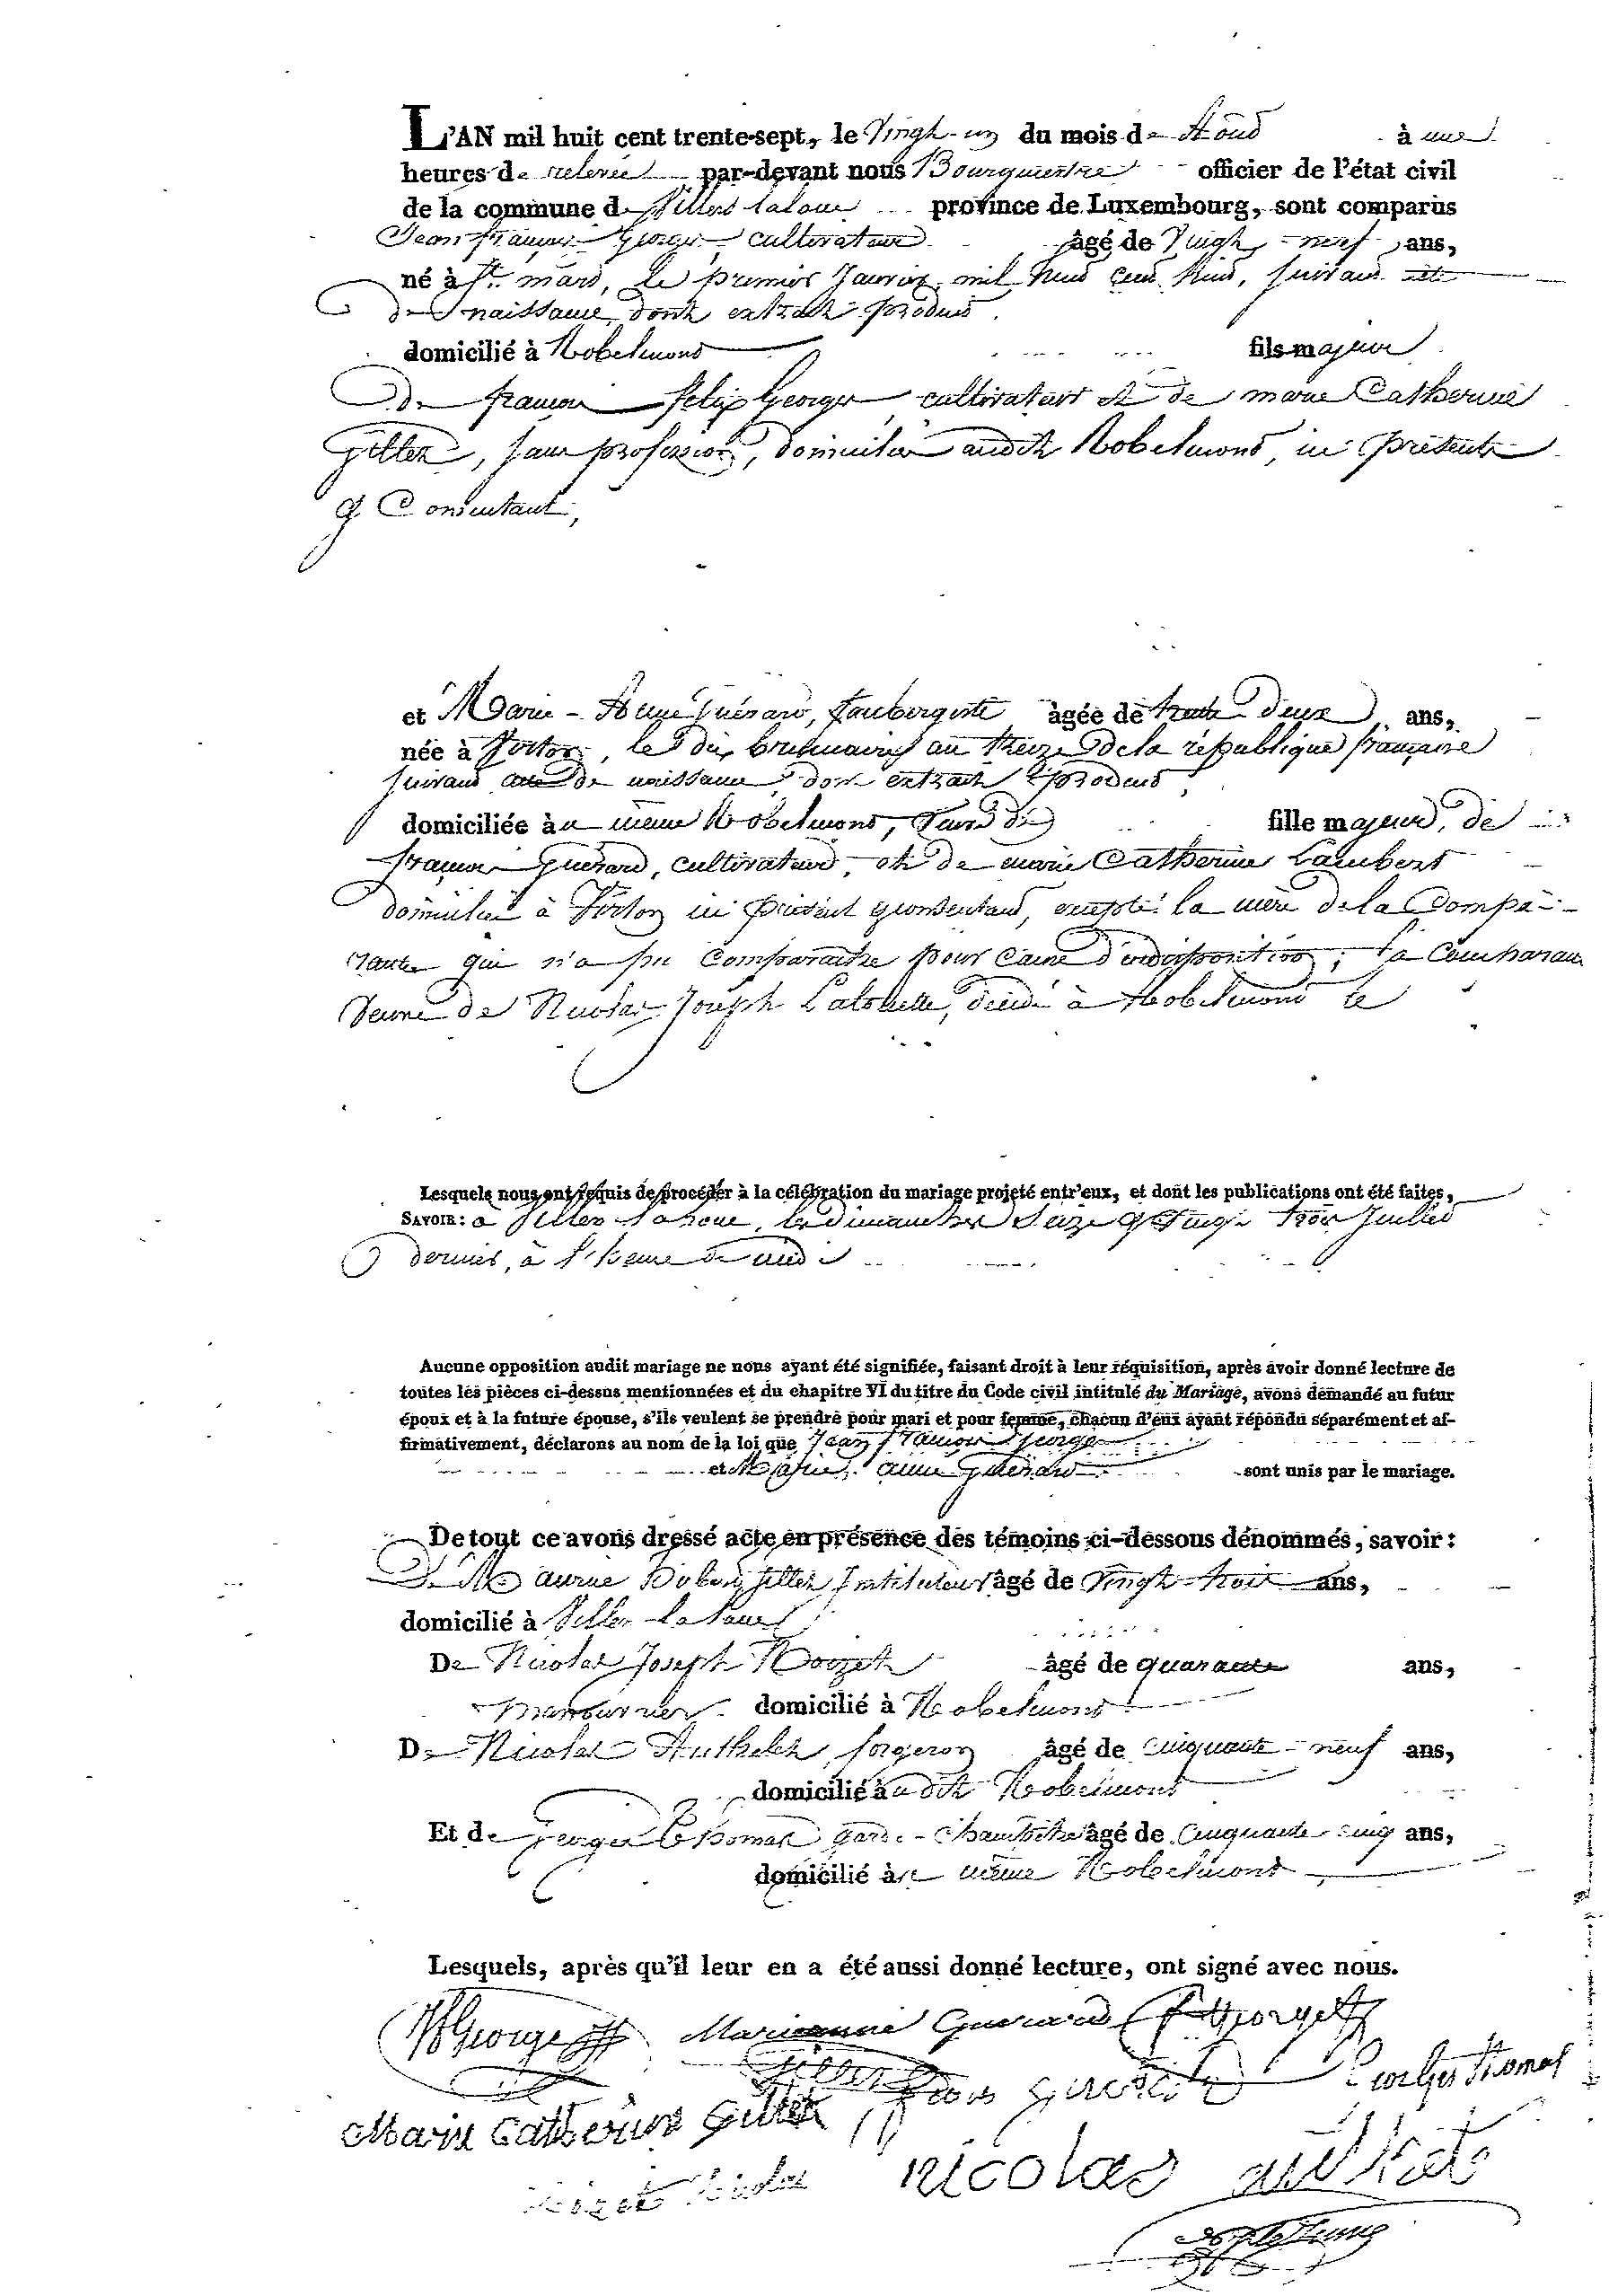 L'AN mil huit cent trente-sept, le Vingt-un du mois de Août à une
heures de relevée par-devant nous Bourgmestre officier de l'état civil
de la commune de Villers laloue province de Luxembourg, sont comparus
Jean françois George, cultivateur âgé de Vingt-neuf ans,
né à St. mard, le premier Janvier mil huit cent huit, suivant acte
de naissance dont extrait produit.
domicilié à Robelmont fils majeur
de françois felix George cultivateur et de marie Catherine
Gillet, sans profession, domiciliés audit Robelmont, ici présents
& Consentant,
et Marie-Anne Guérard, aubergiste âgée de trente deux ans,
née à Virton, le dix brumaire an treize de la république française
suivant acte de naissance dont extrait produit,
domiciliée au même Robelmont, fille majeure, de
françois Guérard, cultivateur et de marie Catherine Lambert
domiciliés à Virton ici présent & consentant, excepté la mère de la Compa-
rante qui n'a pu Comparaître pour cause d'indisposition; la Comparante
Veuve de Nicolas Joseph décédé à Robelmont le
Lesquels nous ont requis de procéder à la célébration du mariage projeté entr'eux, et dont les publications ont été faites,
SAVOIR: à Villers laloue, les dimanches Seize & Vingt trois Juillet
dernier, à l'heure de midi
Aucune opposition audit mariage ne nous ayant été signifiée, faisant droit à leur réquisition, après avoir donné lecture de
toutes les pièces ci-dessus mentionnées et du chapitre VI du titre du Code civil intitulé du Mariage, avons demandé au futur
époux et à la future épouse, s'ils veulent se prendre pour mari et pour femme, chacun d'eux ayant répondu séparément et af-
firmativement, déclarons au nom de la loi que Jean françois George
et Marie anne Guérard sont unis par le mariage.
De tout ce avons dressé acte en présence des témoins ci-dessous dénommés, savoir:
De Gillet Instituteur âgé de Vingt-trois ans,
domicilié à Villers-laloue
De Nicolas Joseph Rozet âgé de quarante ans,
manouvrier domicilié à Robelmont
De Nicolas Authelet, forgeron âgé de cinquante-neuf ans,
domicilié audit Robelmont
Et de Georges Thomas garde-champêtre âgé de Cinquante cinq ans,
domicilié au même Robelmont
Lesquels, après qu'il leur en a été aussi donné lecture, ont signé avec nous.
George Marieanne Guerard George
Gillet Georges Thomas
Marie Catherine Gillet
Nicolas